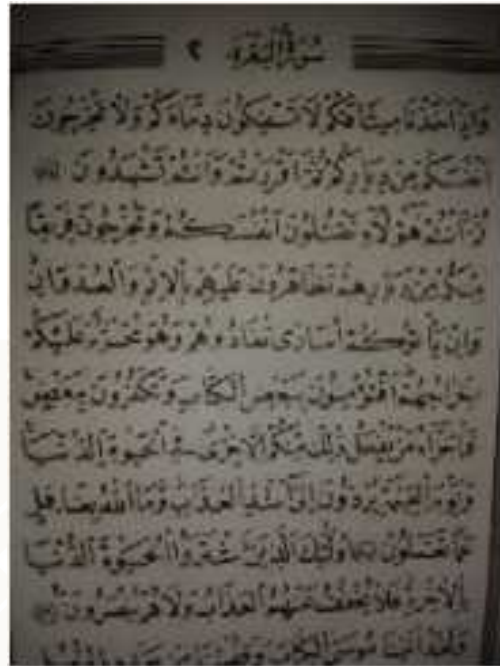 سورة البقرة ٢
وإذ أخذنا ميثاقكم لا تسفكون دماءكم ولا تخرجون
أنفسكم من دياركم ثم أقررتم وأنتم تشهدون
ثم أنتم هؤلاء تقتلون أنفسكم وتخرجون فريقا
منكم من ديرهم تظاهرون عليهم بالإثم والعدوان
وإن يأتوكم أسارى تفادوهم وهو محرم عليكم
إخراجهم أفتؤمنون ببعض الكتاب وتكفرون ببعض
فما جزاء من يفعل ذلك منكم إلا خزى في الحيوة الدنيا
ويوم القيمة يردون إلى أشد العذاب وما الله بغافل
عما تعملون أولئك الذين اشتروا الحيوة الدنيا
بالآخرة فلا يخفف عنهم العذاب ولا هم ينصرون
ولقد آتينا موسى الكتاب وقفينا من بعده